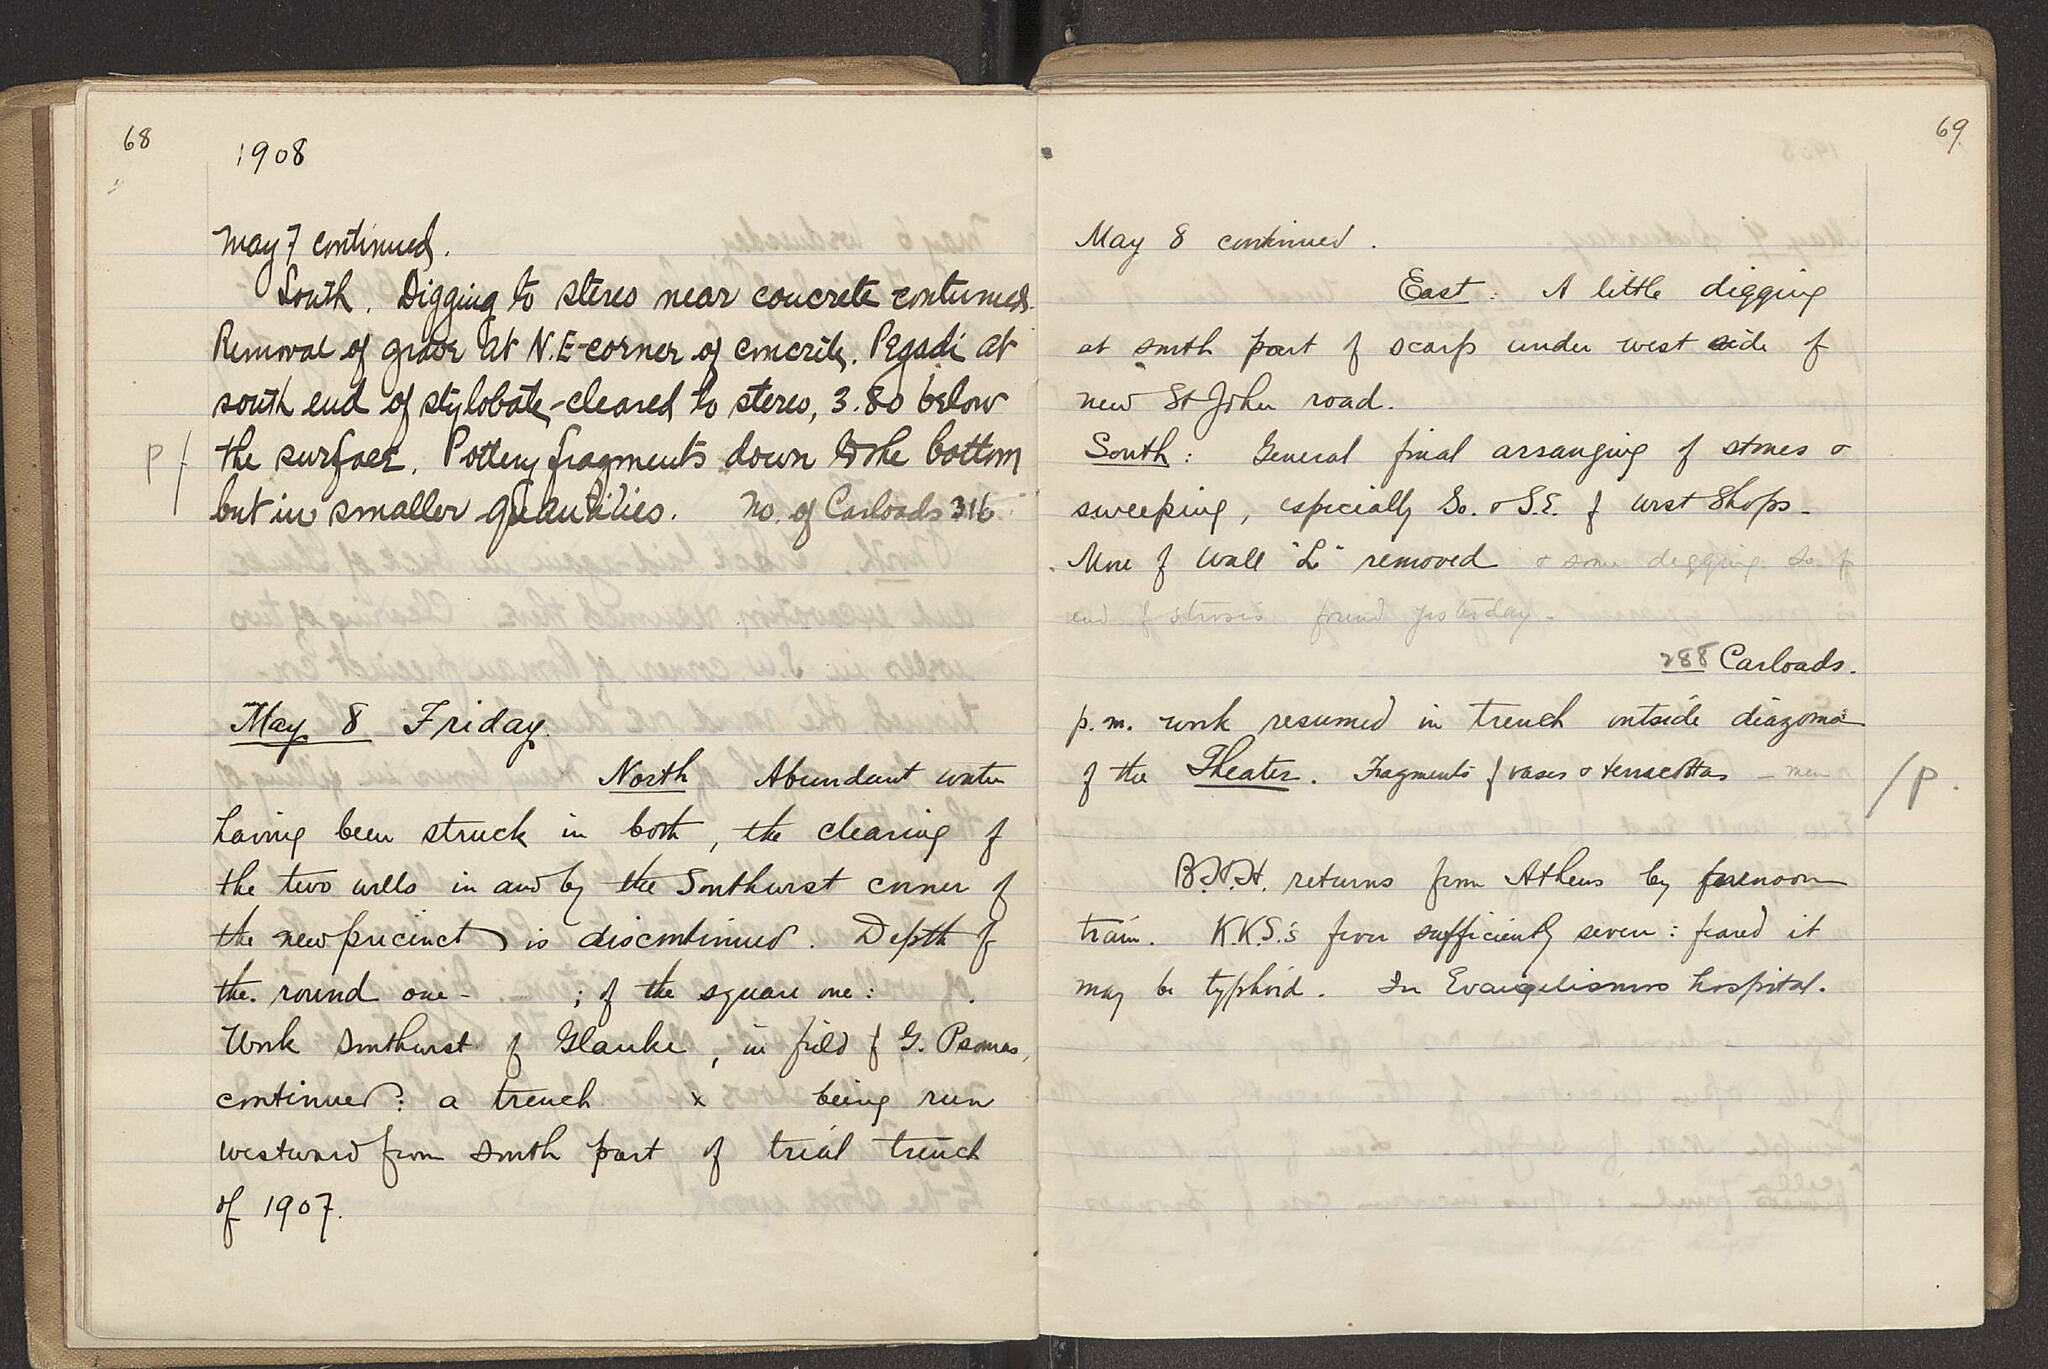 68
1908
May 7 continued.
South. Digging to stereo near concrete continued.
Removal of grave at N.E-corner of concrete. Pegadi at
south end of stylobate cleared to stereo, 3.80 below
P / the surface. Pottery fragments down to the bottom
but in smaller quantities. No. of Carloads 316
May 8 Friday.
North Abundant water
having been struck in both, the clearing of
the two wells in and by the Southwest corner of
the new precinct is discontinued. Depth of
the round one - ; of the square one: .
Work southwest of Glauke, in field of G. Psomas,
continued: a trench x being run
westward from south part of trial trench
of 1907.
69.
May 8 continued.
East: A little digging
at south part of scarp under west side of
new St John road.
South: General final arranging of stones &
sweeping, especially So. & S.E. of West Shops.
More of Wall "L" removed & some digging So. of
end of found yesterday.
288 Carloads.
p.m. work resumed in trench outside diazoma
of the Theater. Fragments of vases & terracottas /P.
B.H.H. returns from Athens by forenoon
train. K.K.S.'s fever sufficiently severe: feared it
may be typhoid. In Evangelismos hospital.